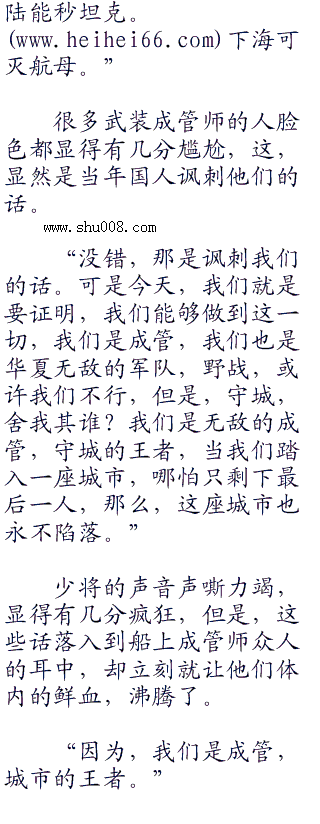 陆能秒坦克。
(www.heihei66.com)下海可
灭航母。”
很多武装成管师的人脸
色都显得有几分尴尬，这，
显然是当年国人讽刺他们的
话。
www.shu008.com
“没错，那是讽刺我们
的话。可是今天，我们就是
要证明，我们能够做到这一
切，我们是成管，我们也是
华夏无敌的军队，野战，或
许我们不行，但是，守城，
舍我其谁？我们是无敌的成
管，守城的王者，当我们踏
入一座城市，哪怕只剩下最
后一人，那么，这座城市也
永不陷落。”
少将的声音声嘶力竭，
显得有几分疯狂，但是，这
些话落入到船上成管师众人
的耳中，却立刻就让他们体
内的鲜血，沸腾了。
“因为，我们是成管，
城市的王者。”